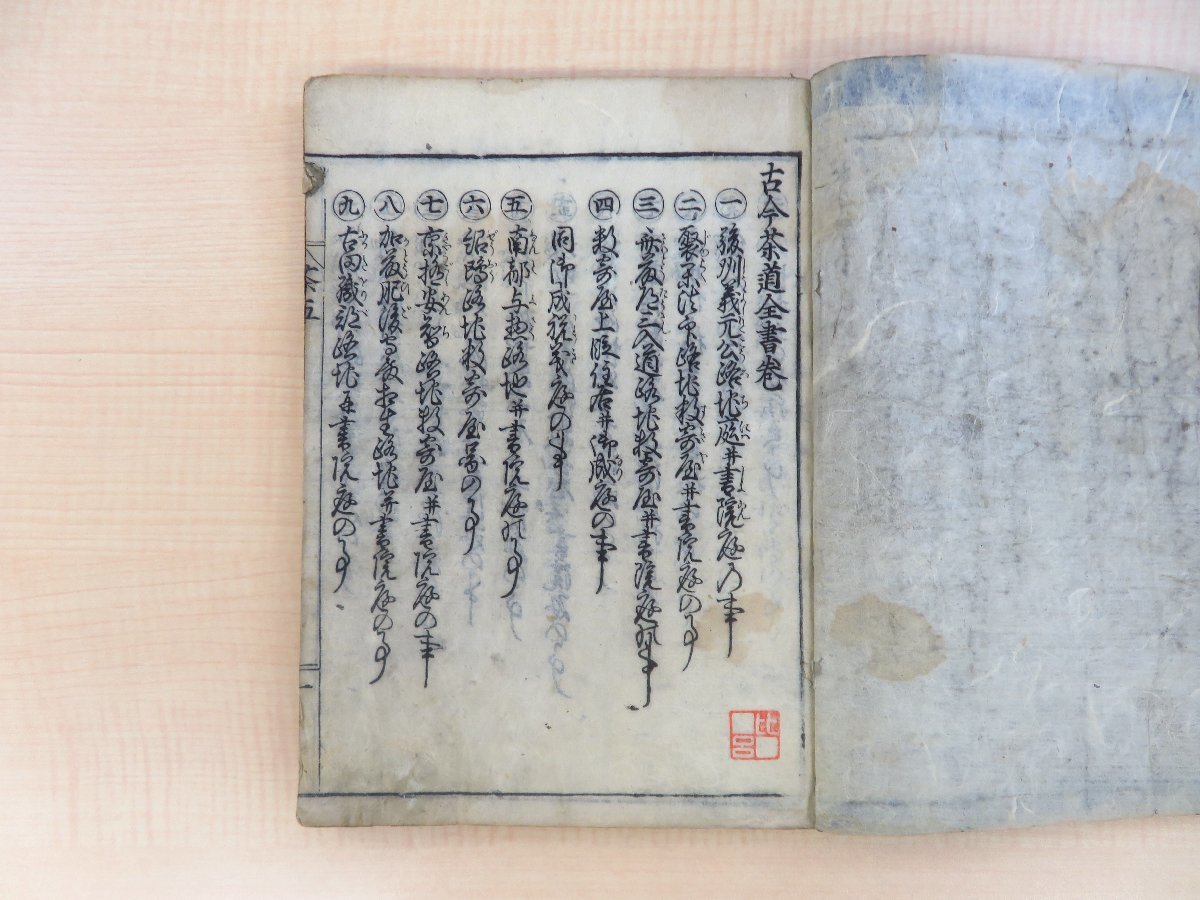 古今茶道全書巻
㊀駿州義元公路地庭并書院庭乃事
㊁聚楽 路地数寄屋并書院庭の事
㊂ 入道路地数寄屋并書院庭乃事
㊃数寄屋上段 并御成庭の事
同御成 庭の事
㊄南都与 路地并書院庭 事
㊅紹鴎路地数寄屋 の事
㊆京極安智路地数寄屋并書院庭の事
㊇加藤肥後守 路地并書院庭の事
㊈古田織部路地并書院庭の事
茶五
一